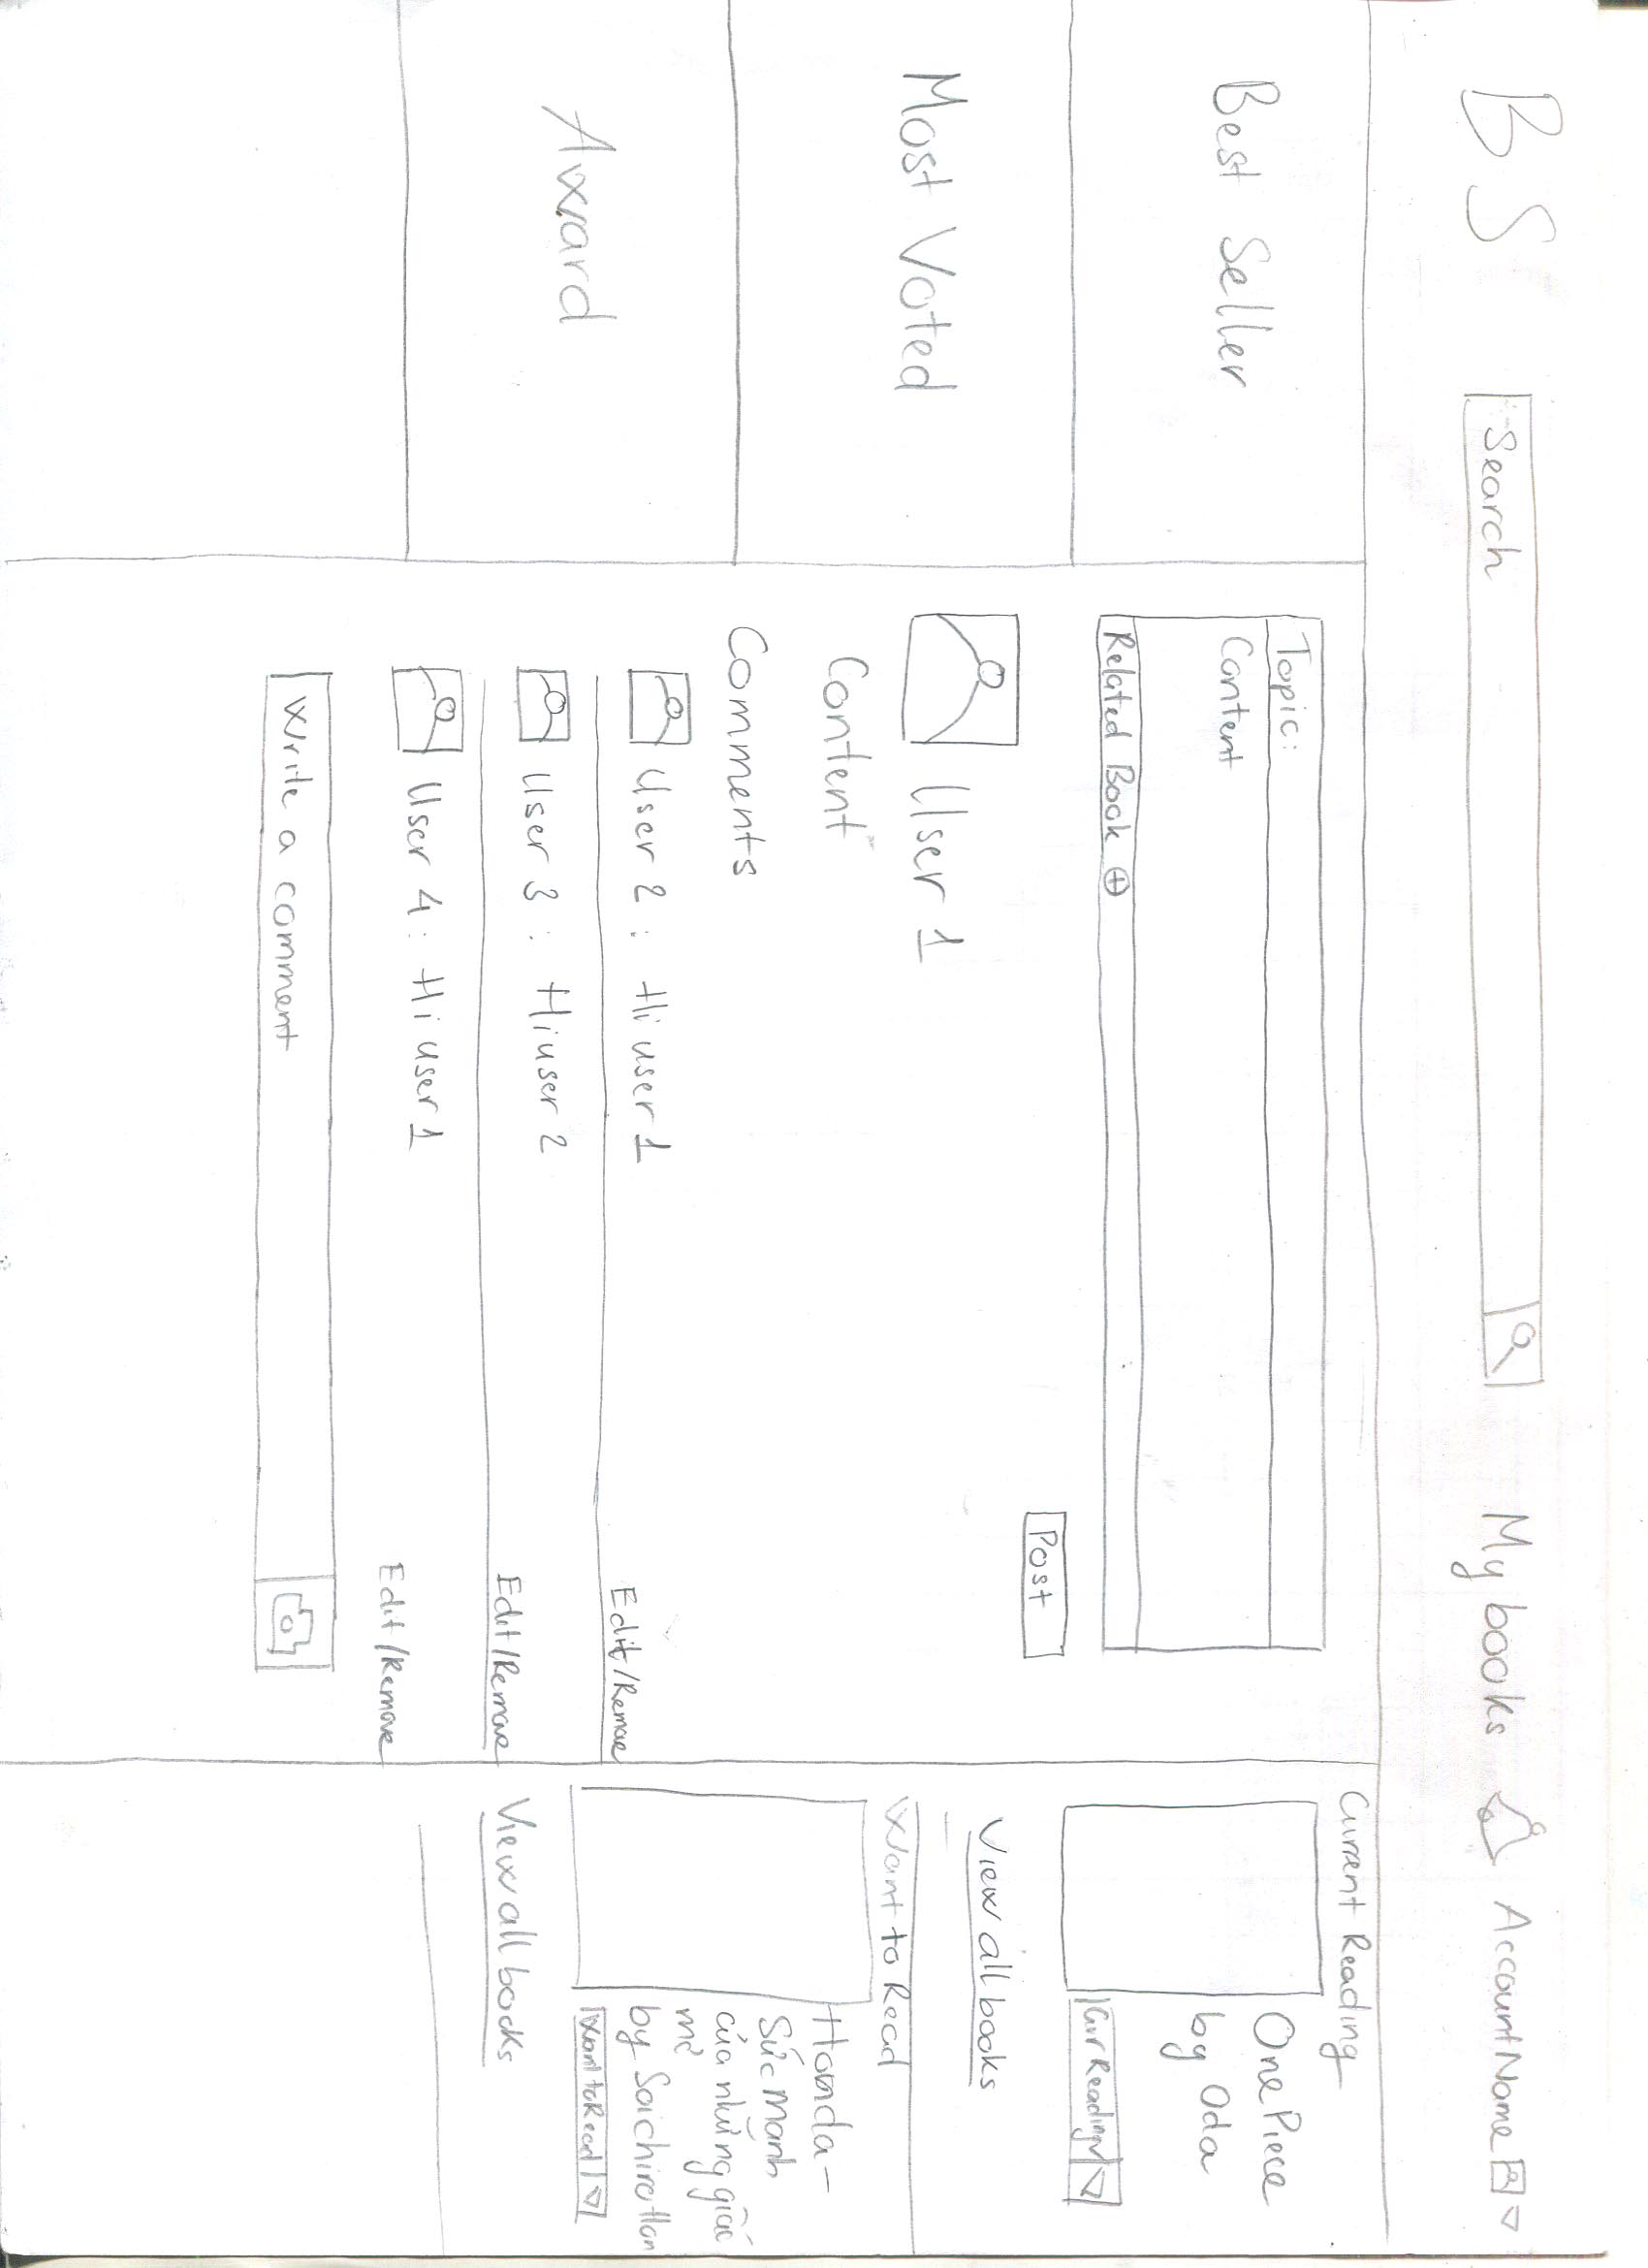 BS
Search
My books
AccountName
Best Seller
Most Voted
Award
Topic:
Content
Related Book
Post
User 1
Content
Comments
User 2 : Hi user 1
Edit/Remove
User 3 : Hi user 2
Edit/Remove
User 4 : Hi user 1
Edit/Remove
Write a comment
Current Reading
One Piece
by Oda
Cur Reading
View all books
Want to Read
Honda -
Sức mạnh
của những giấc
mơ
by Soichiro Hon
Want to Read
View all books